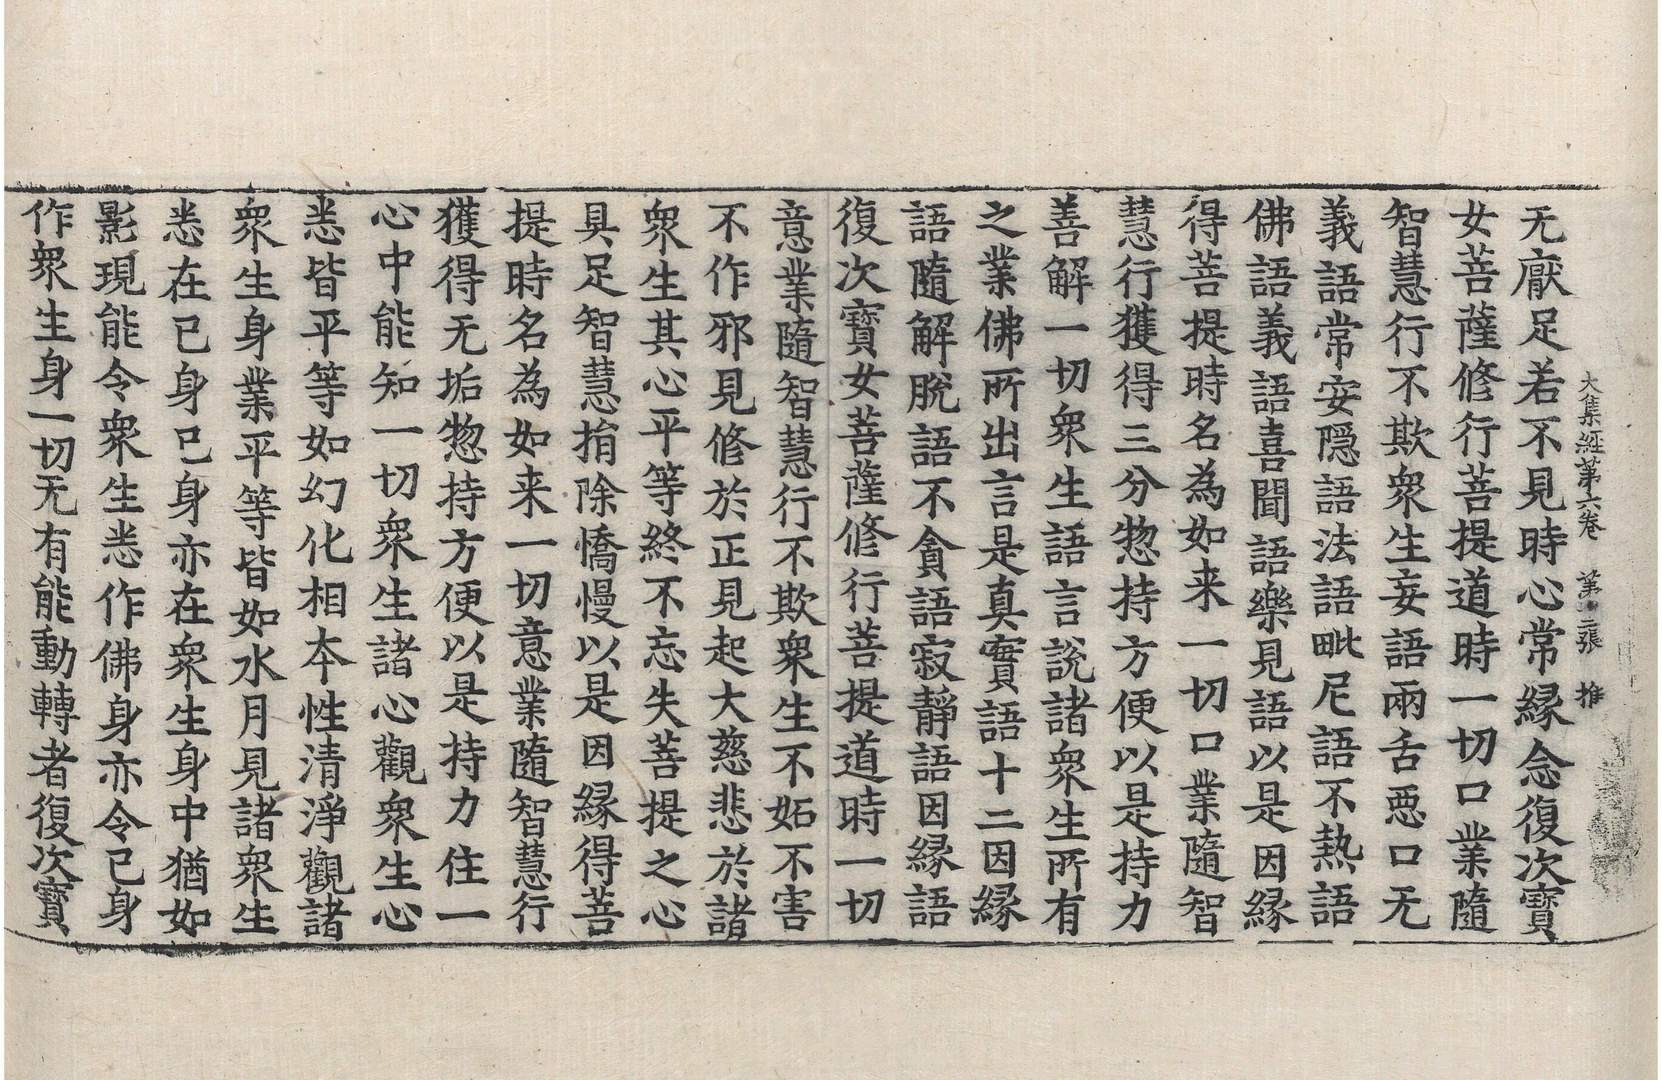 大集經第六卷　第二張　推
无厭足若不見時心常縁念復次寶
女菩薩修行菩提道時一切口業隨
智慧行不欺衆生妄語兩舌惡口无
義語常安隱語法語毗尼語不熱語
佛語義語喜聞語樂見語以是因縁
得菩提時名為如来一切口業隨智
慧行獲得三分惣持方便以是持力
善解一切衆生語言說諸衆生所有
之業佛所出言是真實語十二因縁
語隨解脫語不貪語寂靜語因縁語
復次寶女菩薩修行菩提道時一切
意業隨智慧行不欺衆生不妬不害
不作邪見修於正見起大慈悲於諸
衆生其心平等終不忘失菩提之心
具足智慧捐除憍慢以是因縁得菩
提時名為如来一切意業隨智慧行
獲得无垢惣持方便以是持力住一
心中能知一切衆生諸心觀衆生心
悉皆平等如幻化相本性清淨觀諸
衆生身業平等皆如水月見諸衆生
悉在已身已身亦在衆生身中猶如
影現能令衆生悉作佛身亦令已身
作衆生身一切无有能動轉者復次寶